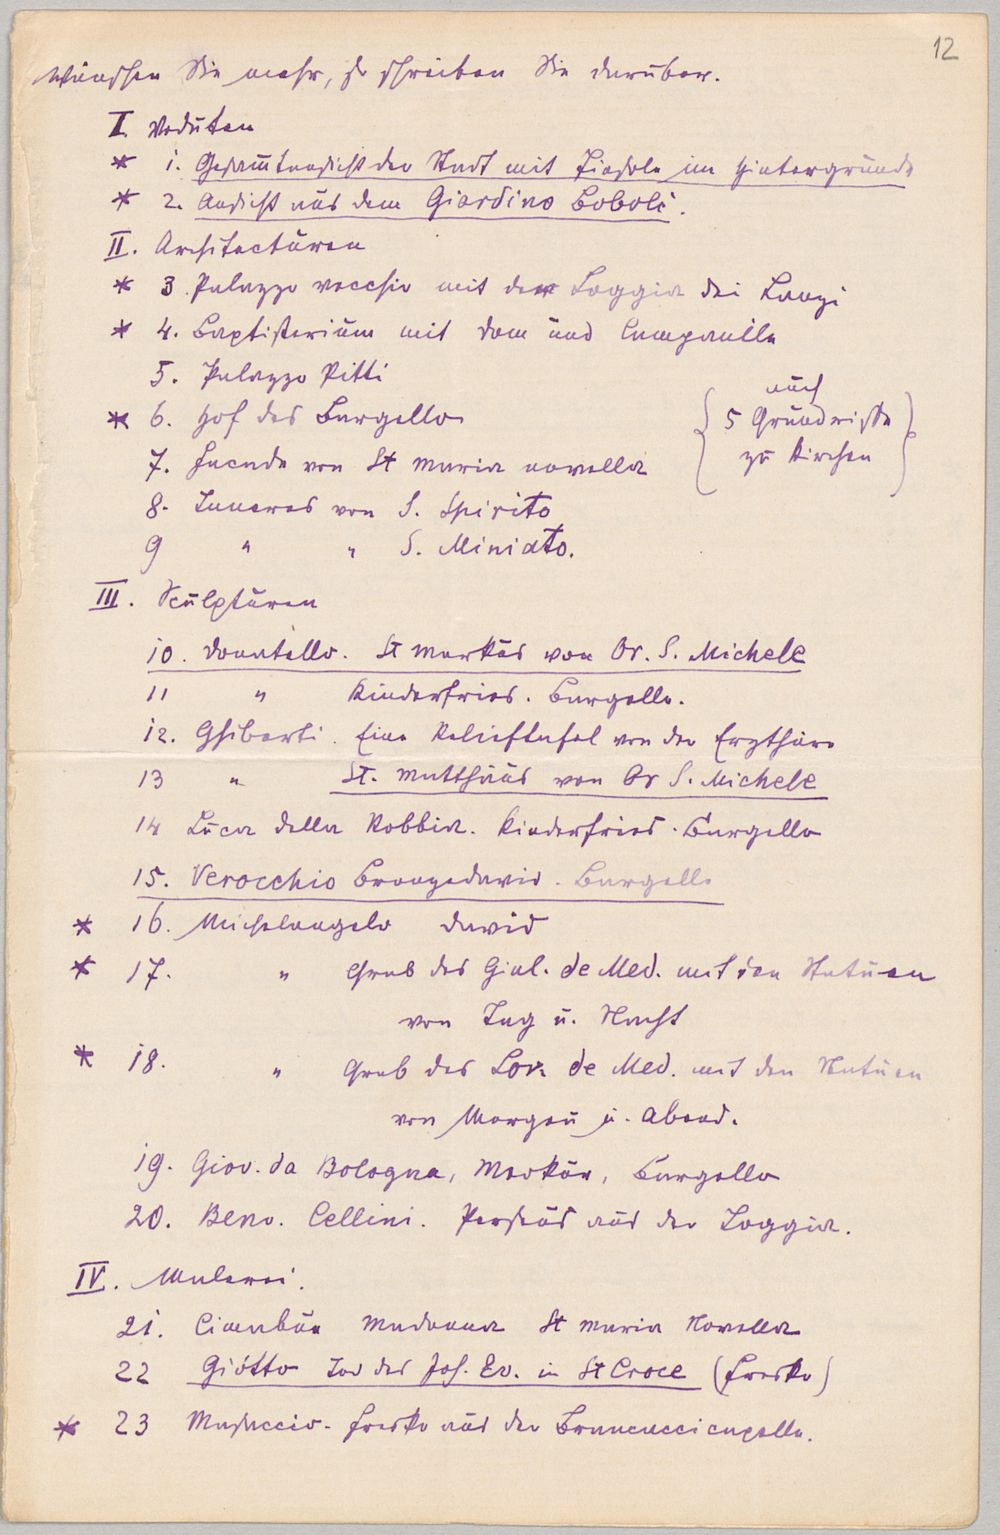 12
Wünschen Sie mehr, so schreiben Sie darüber.
I. Veduten
* 1. Gesamtansicht der Stadt mit Fiesole im Hintergrunde
* 2. Ansicht aus dem Giardino Boboli.
II. Architecturen
* 3. Palazzo vecchio mit der Loggia dei Lanzi
* 4. Baptisterium mit Dom und Campanile
5. Palazzo Pitti
* 6. Hof des Bargello
7. Facade von St Maria novella
{ auch
5 Grundrisse
zu Kirchen }
8. Inneres von S. Spirito
9 " " S. Miniato.
III. Sculpturen
10. Donatello. St Markus von Or. S. Michele
11 " Kinderfries. Bargello.
12. Ghiberti. Eine Relieftafel von der Erzthüre
13 " St. Matthäus von Or S. Michele
14 Luca della Robbia. Kinderfries. Bargello
15. Verocchio Bronzedavid. Bargello
* 16. Michelangelo David
* 17. " Grab des Giul. de Med. mit den Statuen
von Tag u. Nacht
* 18. " Grab des Lor. de Med. mit den Statuen
von Morgen u. Abend.
19. Giov. da Bologna, Merkur, Bargello
20. Benv. Cellini. Perseus aus der Loggia.
IV. Malerei.
21. Cimabue Madonna St Maria Novella
22 Giotto Tod des Joh. Ev. in St Croce (Fresko)
* 23 Masaccio. Fresko aus der Brancaccicapelle.